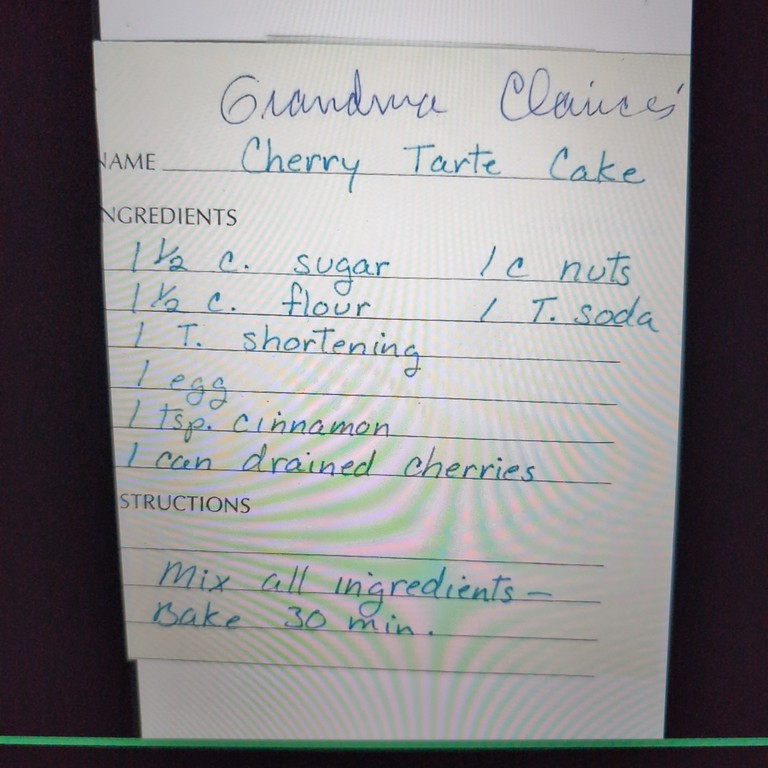 Grandma Claire's
NAME Cherry Tarte Cake
NGREDIENTS
1 1/2 c. sugar 1 c nuts
1 1/2 c. flour 1 T. soda
1 T. shortening
1 egg
1 tsp. cinnamon
1 can drained cherries
STRUCTIONS
Mix all ingredients -
Bake 30 min.